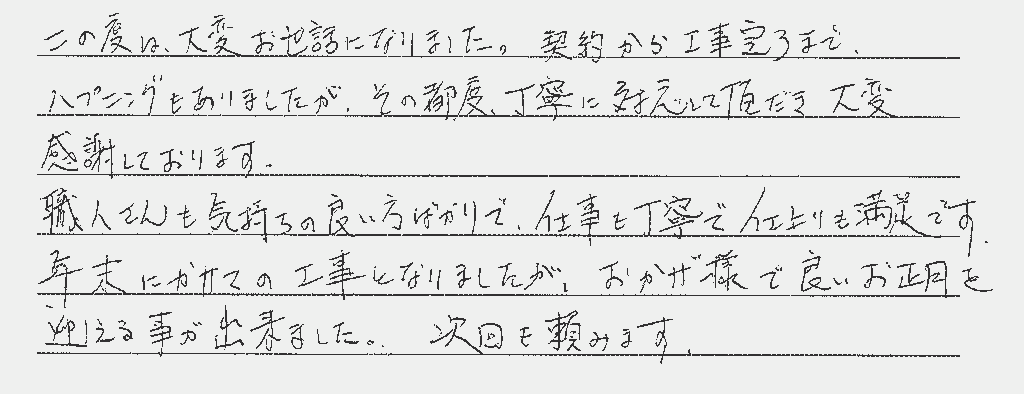 この度は、大変お世話になりました。契約から工事完了まで、
ハプニングもありましたが、その都度、丁寧に対応して頂だき大変
感謝しております。
職人さんも気持ちの良い方ばかりで、仕事も丁寧で仕上りも満足です。
年末にかけての工事となりましたが、おかげ様で良いお正月を
迎える事が出来ました。次回も頼みます。